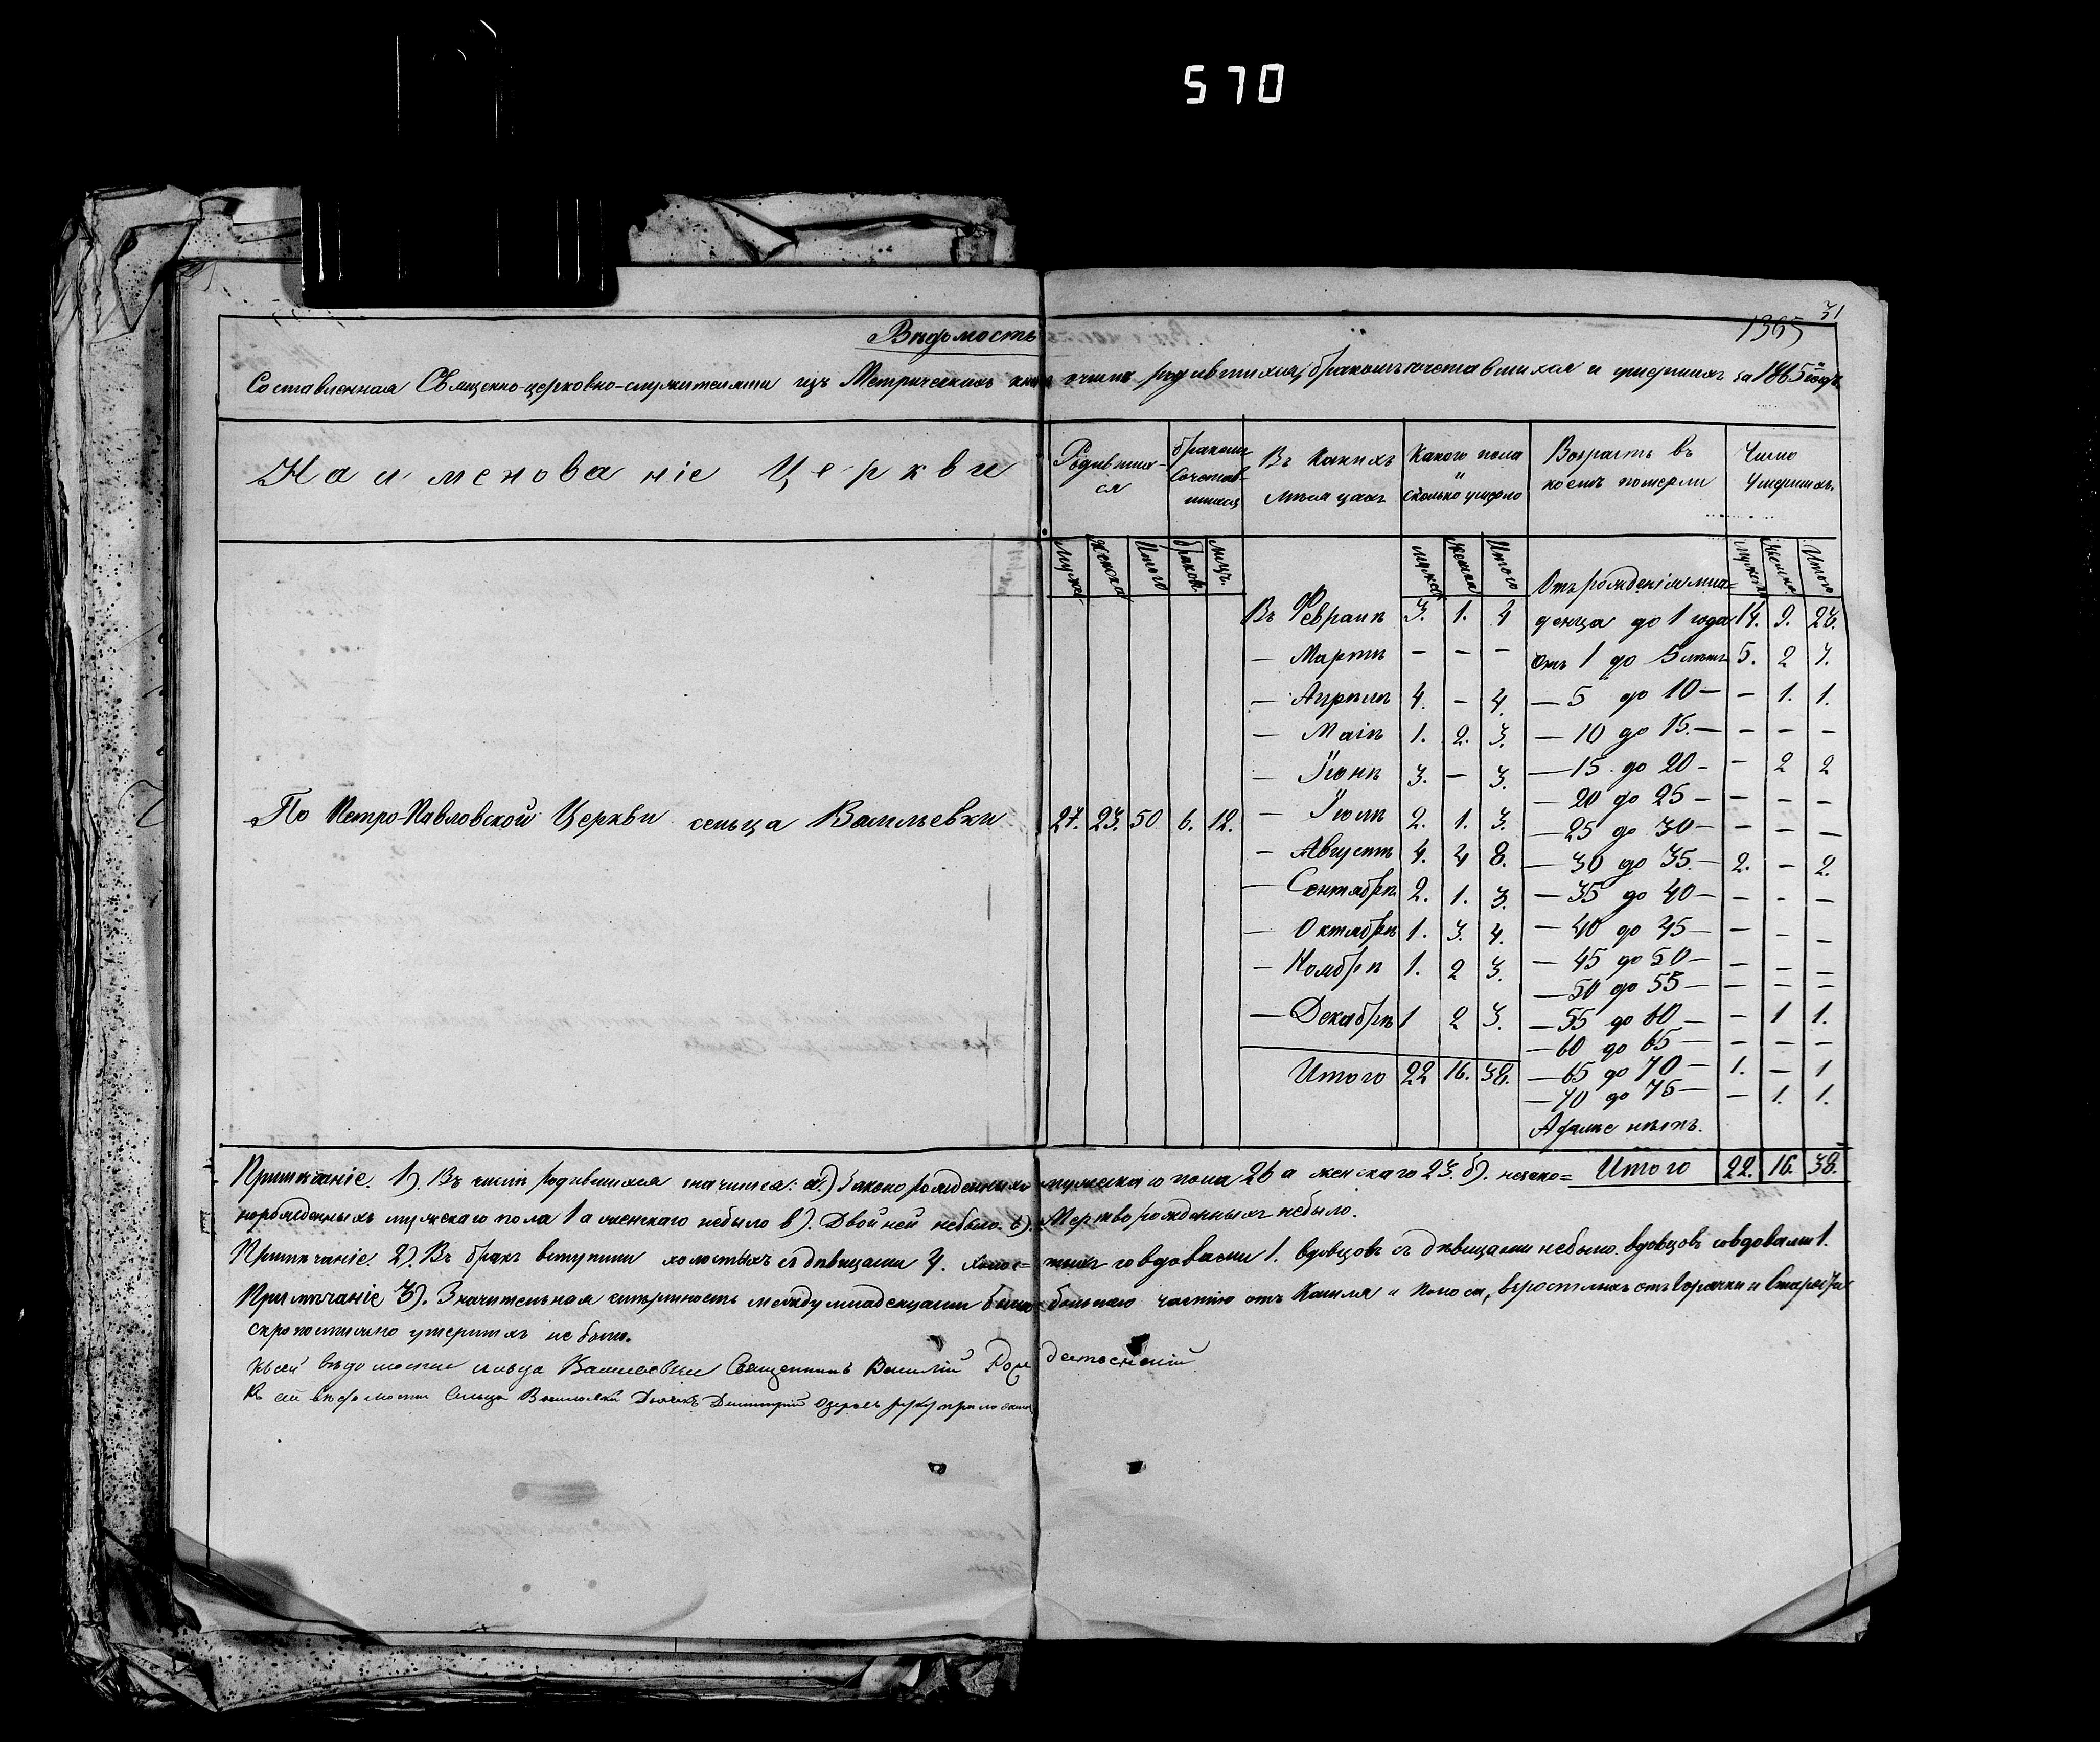 570
31
1365
Вѣдомость
Составленная Священно-церковно-служителями изъ Метрическихъ книгъ о числѣ родившихся, бракомъ сочетавшихся и умершихъ за 1865 годъ.
Наименованіе Церкви
Родившихся
бракомъ сочетавшихся
Въ какихъ мѣсяцахъ
Какого пола и сколько умерло
Возрастъ въ коемъ померли
Число умершихъ.
мужес. женска Итого браков. лицъ. мужес женска Итого мужеск женска Итого
По Петро-Павловской Церкви сельца Васильевки 27. 23. 50 6. 12.
Въ Февралѣ 3. 1. 4
— Мартѣ — — —
— Апрѣлѣ 4. — 4.
— Маіѣ 1. 2. 3.
— Іюнѣ 3. — 3.
— Іюлѣ 2. 1. 3.
— Августѣ 4. 4 8.
— Сентябрѣ 2. 1. 3.
— Октябрѣ 1. 3. 4.
— Ноябрѣ 1. 2 3.
— Декабрѣ 1 2 3.
Итого 22 16. 38.
Отъ рожденія мла-
денца до 1 года 14. 9. 23.
Отъ 1 до 5 лѣтъ 5. 2 7.
— 5 до 10 — — 1. 1.
— 10 до 15. — — — —
— 15 до 20 — — 2 2
— 20 до 25 — — — —
— 25 до 30 — — — —
— 30 до 35 — 2. — 2.
— 35 до 40 — — — —
— 40 до 45 — — — —
— 45 до 50 — — — —
— 50 до 55 — — — —
— 55 до 60 — — 1 1.
— 60 до 65 — — — —
— 65 до 70 — 1. — 1
— 70 до 75 — — 1. 1.
А далѣе нѣтъ.
Итого 22. 16. 38.
Примѣчаніе. 1). Въ числѣ родившихся значится: а.) Законорожденныхъ мужскаго пола 26 а женскаго 23. б). незако=
норожденныхъ мужскаго пола 1 а женскаго небыло в). Двойней небыло. Мертворожденныхъ небыло.
Примѣчаніе. 2). Въ бракъ вступили холостыхъ съ дѣвицами 4. холос= тыхъ со вдовами 1. вдовцовъ съ дѣвицами небыло. вдовцовъ со вдовами 1.
Примѣчаніе 3). Значительная смертность между младенцами была большею частію отъ Кашля и поноса, взрослыхъ отъ горячки и
скоропостижно умершихъ не было.
Къ сей вѣдомости сельца Васильевки Священникъ Василій
Къ сей вѣдомости Сельца Васильевки Дьячекъ Димитрій руку приложилъ